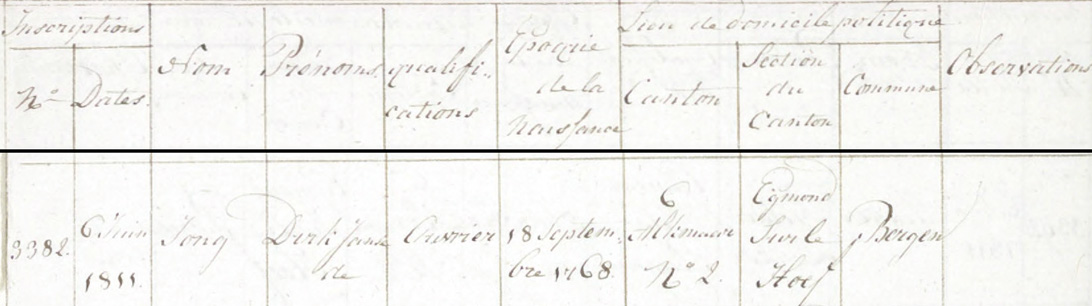 Inscriptions
N.o
Dates.
Nom
Prénoms.
qualifi-
cations
Epoque
de la
Naissance
Lieu de domicile politique
Canton
Section
du
Canton
Commune
Observations
3382.
6 Juin
1811.
Jong
Dirk Janse
de
Ouvrier
18 Septem-
bre 1768.
6
Alkmaar
No 2.
Egmond
sur le
Hoef
Bergen